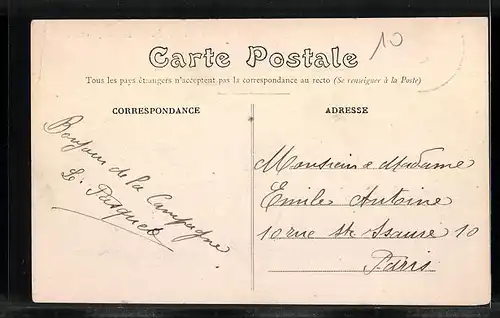 Carte Postale
10
Tous les pays étrangers n'acceptent pas la correspondance au recto (Se renseigner à la Poste)
CORRESPONDANCE
Bonjour de la Campagne
L. Pasquet
ADRESSE
Monsieur & Madame
Emile Antoine
10 rue Ste Isaure 10
Paris